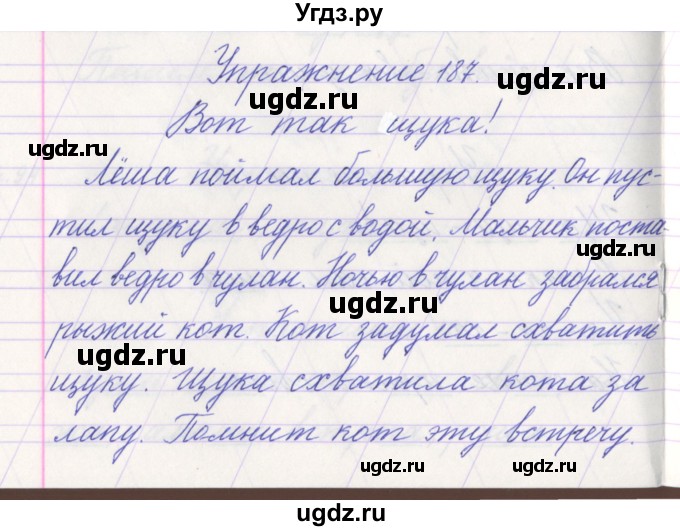 Угдз.ру
Упражнение 187.
ugdz.ru
ugdz.ru
Вот так щука!
Лёша поймал большую щуку. Он пус-
тил щуку в ведро с водой. Мальчик поста-
ugdz.ru
вил ведро в чулан. Ночью в чулан забрался
ugdz.ru
рыжий кот. Кот задумал схватить
ugdz.ru
щуку. Щука схватила кота за
лапу. Помнит кот эту встречу.
ugdz.ru
ugdz.ru
ugdz.ru